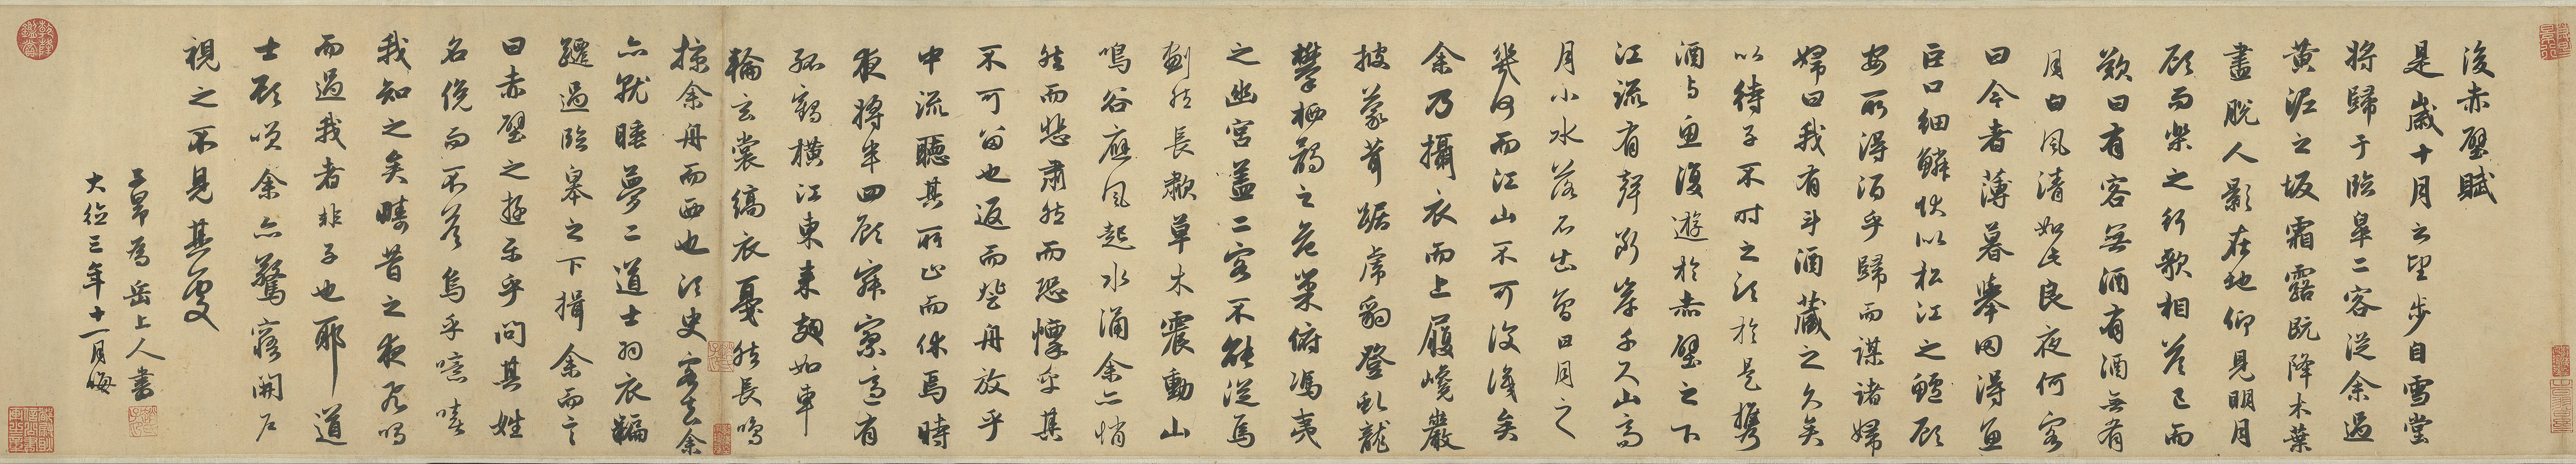 後赤壁賦
是歲十月之望步自雪堂
將歸于臨皋二客從余過
黃泥之坂霜露既降木葉
盡脫人影在地仰見明月
顧而樂之行歌相答已而
歎曰有客無酒有酒無肴
月白風清如此良夜何客
曰今者薄暮舉網得魚
巨口細鱗狀似松江之鱸顧
安所得酒乎歸而謀諸婦
婦曰我有斗酒藏之久矣
以待子不時之須於是攜
酒與魚復遊於赤壁之下
江流有聲斷岸千尺山高
月小水落石出曾日月之
幾何而江山不可復識矣
余乃攝衣而上履巉巖
披蒙茸踞虎豹登虬龍
攀栖鶻之危巢俯馮夷
之幽宮蓋二客不能從焉
劃然長嘯草木震動山
鳴谷應風起水涌余亦悄
然而悲肅然而恐懍乎其
不可留也返而登舟放乎
中流聽其所止而休焉時
夜將半四顧寂寥適有
孤鶴橫江東來翅如車
輪玄裳縞衣戛然長鳴
掠余舟而西也須臾客去余
亦就睡夢二道士羽衣翩
躚過臨皋之下揖余而言
曰赤壁之遊樂乎問其姓
名俛而不答烏乎噫嘻
我知之矣疇昔之夜飛鳴
而過我者非子也耶道
士顧笑余亦驚寤開戶
視之不見其處
子昂為岳上人書
大德三年十一月晦
乾隆鑑賞